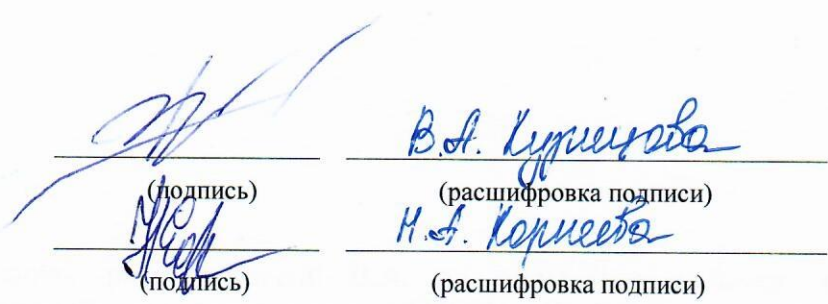 В.А. Кузнецова
(подпись) (расшифровка подписи)
Н.А. Корнеева
(подпись) (расшифровка подписи)